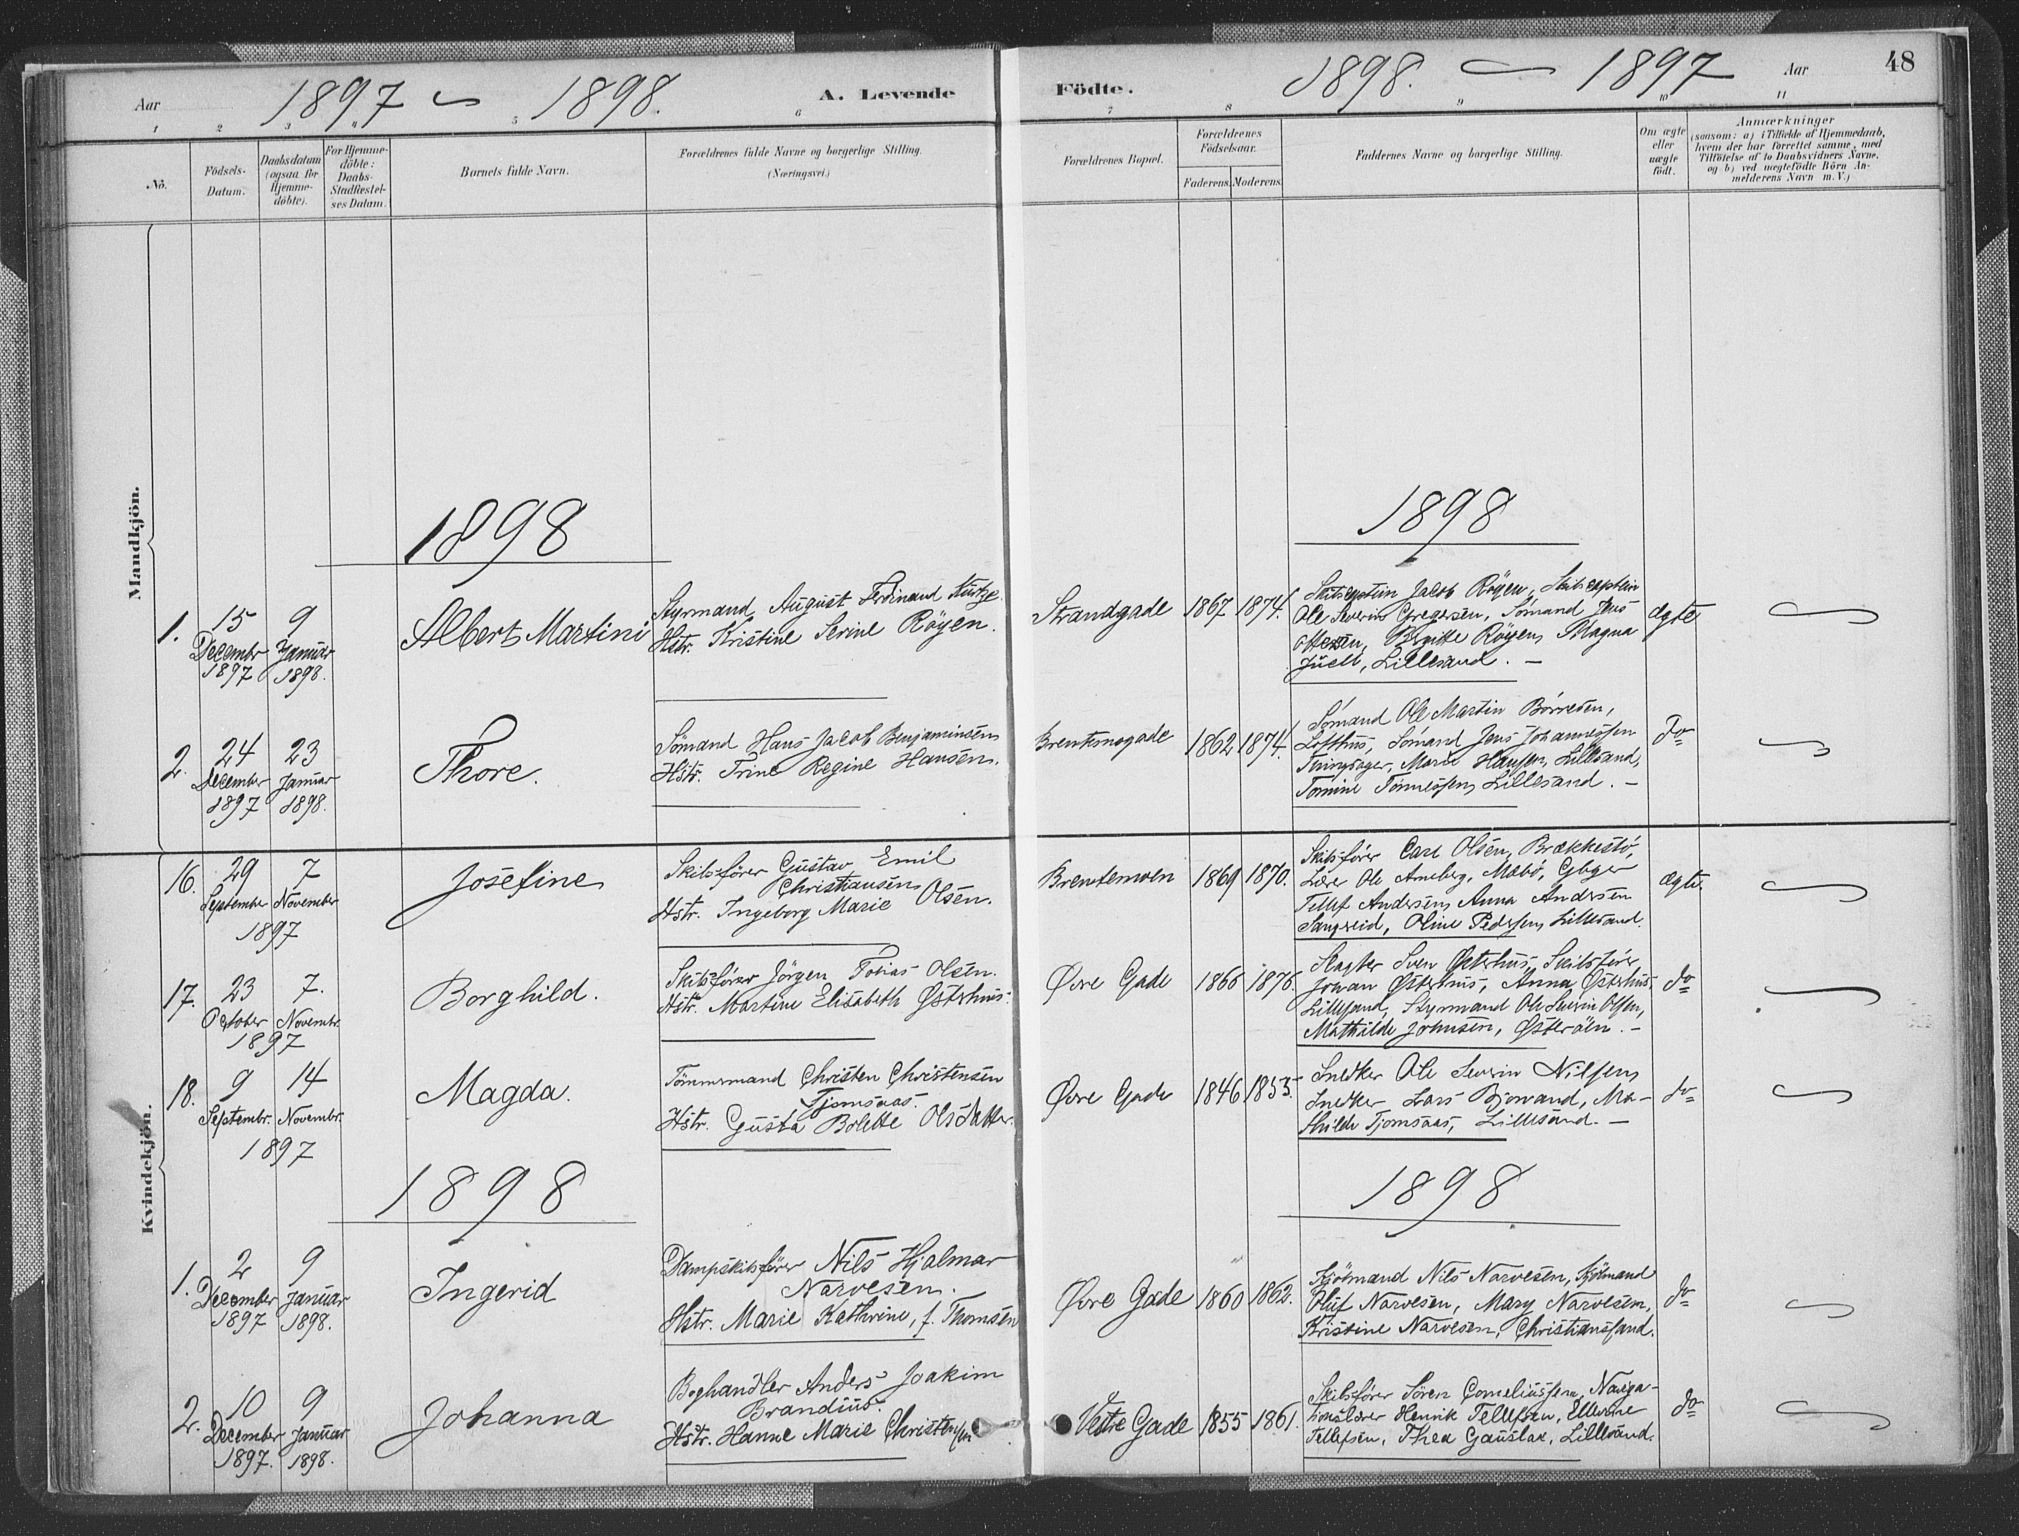 Aar 1897 – 1898. A. Levende Födte. 1898. – 1897 Aar 48
1 2 3 4 5 6 7 8 9 10 11
No.
Födsels-
Datum.
Daabsdatum
(ogsaa for
Hjemme-
döbte).
For Hjemme-
döbte:
Daabs-
Stadfæstel-
ses Datum.
Barnets fulde Navn.
Forældrenes fulde Navne og borgerlige Stilling.
(Næringsvei.)
Forældrenes Bopæl.
Forældrenes
Födselsaar.
Faderens. Moderens.
Faddernes Navne og borgerlige Stilling.
Om ægte
eller
uægte
født.
Anmærkninger
(saasom: a) i Tilfælde af Hjemmedaab,
hvem der har forrettet samme, med
Tilföielse af to Daabsvidners Navne,
og b) ved uægtefödte Börn An-
melderens Navn m. V.)
Mandkjön.
1898
1898
1.
15
Decembr
1897
9
Januar
1898.
Albert Martini
Styrmand August Ferdinand
Hstr. Kristine Serine Röyen.
Strandgade
1867 1874.
Skibscaptein Jacob Röyen, Skibscaptein
Ole Severin Gregersen, Sömand Jens
Ottesen, Birgitte Röyen, Magna
Juell, Lillesand. –
ægte
2.
24
December
1897
23
Januar
1898.
Thore.
Sömand Hans Jacob Benjaminsen
Hstr. Trine Regine Hansen.
1862 1874.
Sömand Ole Martin Börresen,
Lofthus, Sömand Jens Johannessen
Tingsager, Marie Hansen, Lillesand,
Tomine Tönnessen, Lillesand. –
Do
Kvindekjön.
16.
29
September
7
November
1897
Josefine
Skibsförer Gustav Emil
Christiansen
Hstr. Ingeborg Marie Olsen.
Brentemoen
1869 1870.
Skibsförer Carl Olsen, Brækkestö,
Lærer Ole Arneberg, Mæbö, Gbger
Tellef Andersen, Anna Andersen
Sangereid, Oline Pedersen, Lillesand.
ægte
17.
23
October
7.
Novembr.
1897
Borghild.
Skibsförer Jörgen Tobias Olsen.
Hstr. Martine Elisabeth Østerhus.
Øvre Gade
1866 1876.
Slagter Sven Østerhus, Skibsförer
Johan Østerhus, Anna Østerhus
Lillesand, Styrmand Ole Severin Olsen,
Mathilde Johnsen, Østeröen. –
do
18.
9
Septembr.
14
Novembr.
1897
Magda.
Tömmermand Christen Christensen
Tjomsaas.
Hstr. Gusta Bolette Olsdatter.
Øvre Gade
1846 1853.
Snedker Ole Severin Nilsen,
Snedker Lars Bjorvand, Ma-
thilde Tjomsaas, Lillesand. –
do
1898
1898
1.
2
December
1897
9
Januar
1898.
Ingerid
Dampskibsförer Nils Hjalmar
Narvesen.
Hstr. Marie Kathrine, f. Thomsen
Øvre Gade
1860 1862.
Kjöbmand Nils Narvesen, Kjöbmand
Oluf Narvesen, Mary Narvesen,
Kristine Narvesen, Christianssand.
do
2.
10
December
1897.
9
Januar
1898.
Johanna
Boghandler Anders Joakim
Brandius.
Hstr. Hanne Marie Christensen
Vestre Gade
1855 1861.
Skibsförer Sören Corneliussen, Naviga-
tionslærer Henrik Tellefsen, Ellevine
Tellefsen, Thea Gauslaa, Lillesand.
do